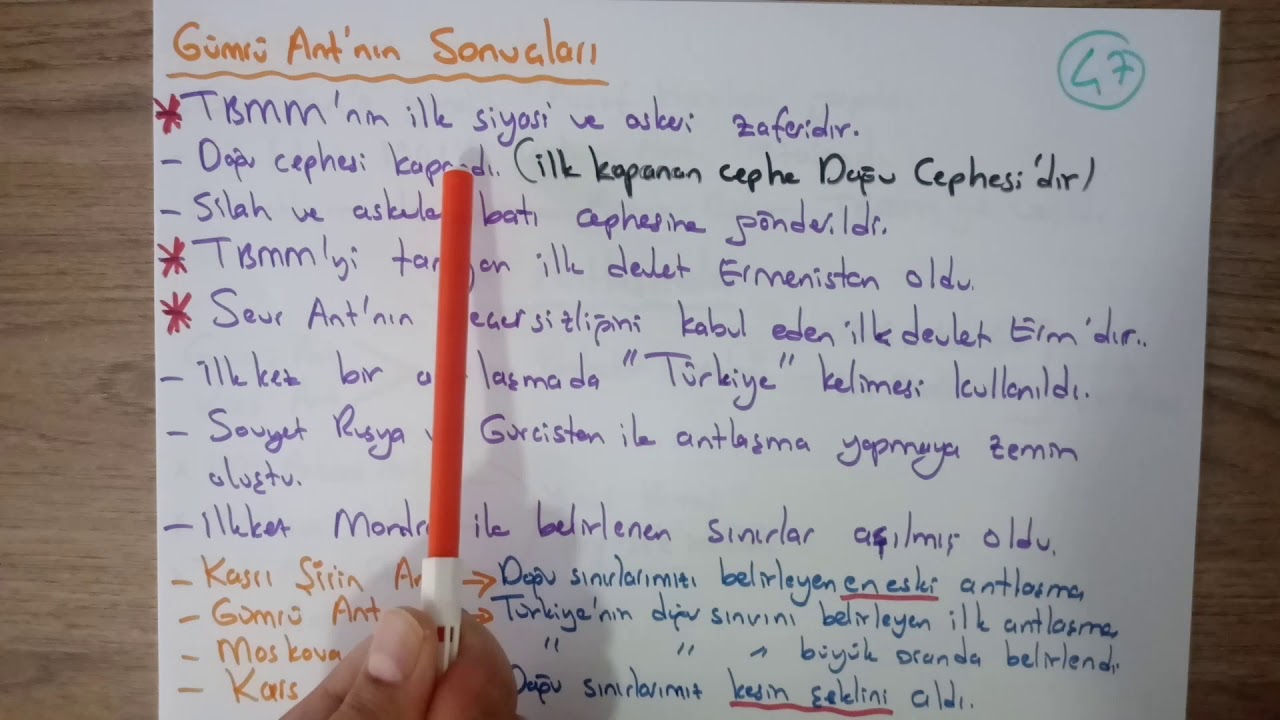 Gümrü Ant'nın Sonuçları
47
* TBMM'nin ilk siyasi ve askeri zaferidir.
- Doğu cephesi kapandı. (ilk kapanan cephe Doğu Cephesi'dir)
- Silah ve askerler batı cephesine gönderildi.
* TBMM'yi ilk devlet Ermenistan oldu.
* Sevr Ant'nın geçersizliğini kabul eden ilk devlet Erm'dir..
- İlkkez bir "Türkiye" kelimesi kullanıldı.
- Sovyet Rusya Gürcistan ile antlaşma yapmaya zemin
oluştu.
- İlkkez ile belirlenen sınırlar aşılmış oldu.
- Kasrı Şirin → Doğu sınırlarımızı belirleyen en eski antlaşma
- Gümrü Ant → Türkiye'nin doğu sınırını belirleyen ilk antlaşma
- Moskova " " " büyük oranda belirlendi.
- Kars Doğu sınırlarımız kesin şeklini aldı.